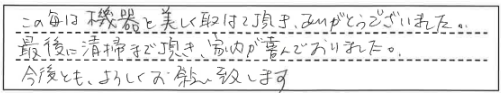 この毎は機器を美しく取付て頂き、ありがとうございました。
最後に清掃まで頂き、家内が喜んでおりました。
今後とも、よろしくお願い致します